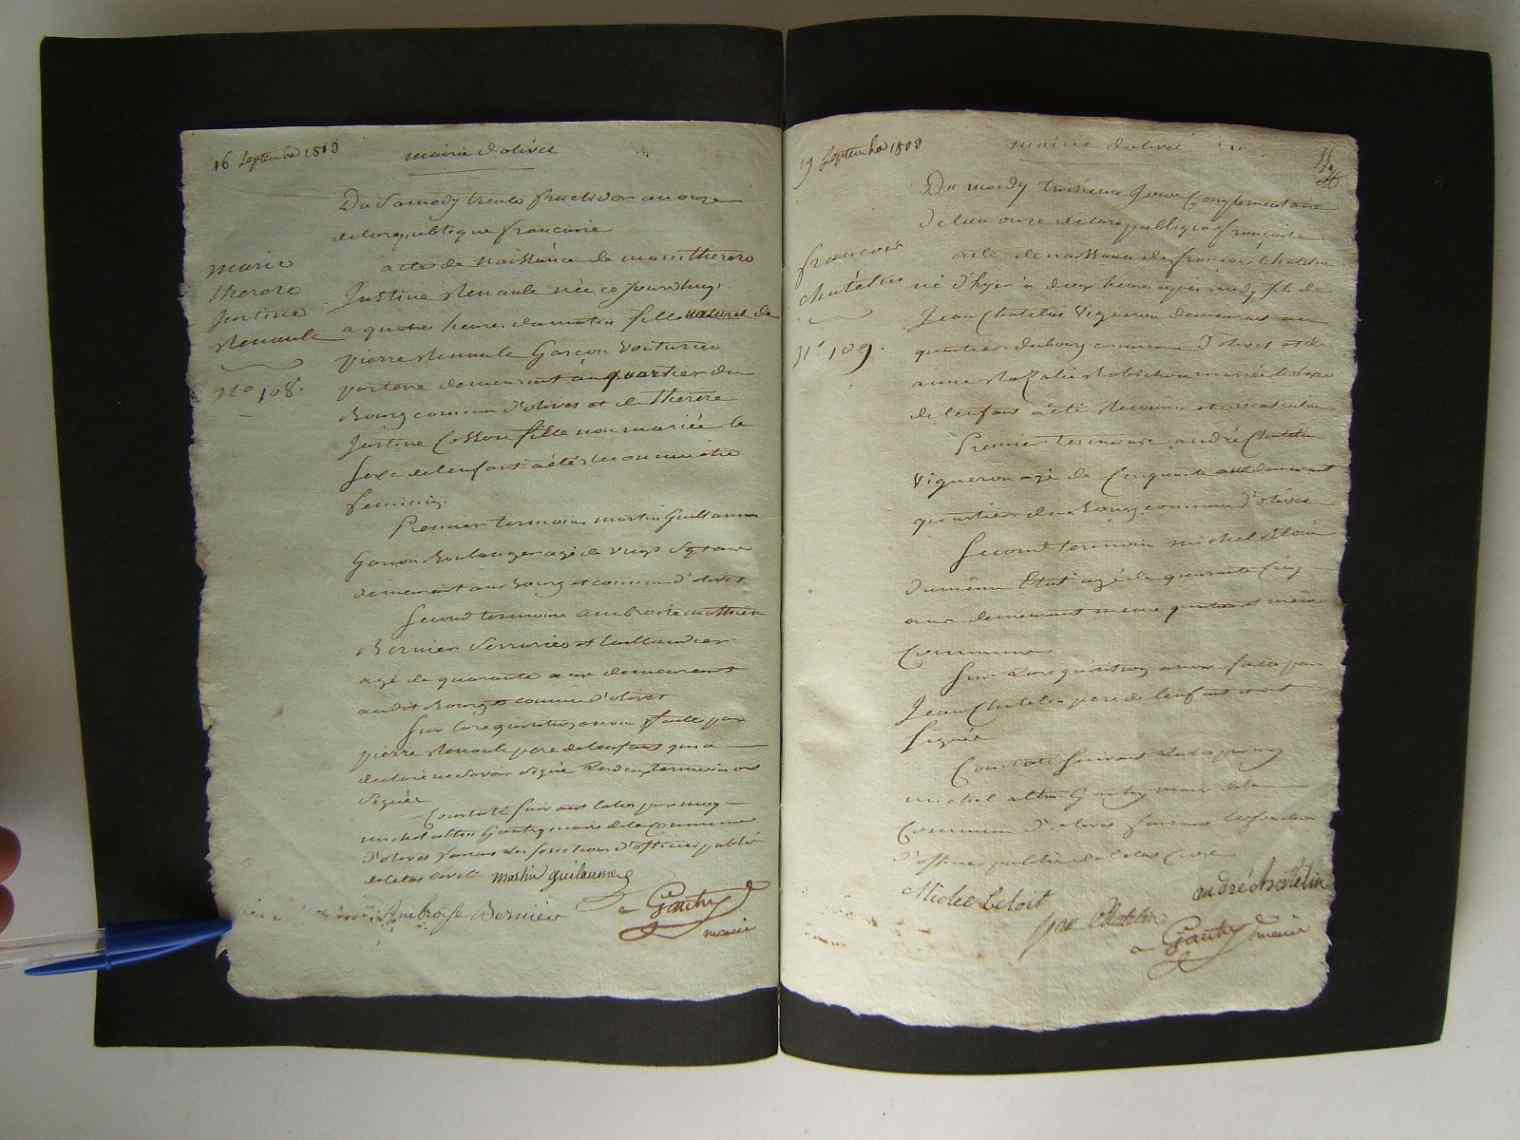 16 Septembre 1803
mairie d'olivet
Du Samedy trente fructidor an onze
de la republique francaise
marie
therere
Justine
Renault
No 108.
acte de Naissance de marie therere
Justine Renault née ce jourdhuy
a quatre heures du matin fille naturel de
pierre Renault Garçon Voiturier
par terre demeurant au quartier du
Bourg commune d'olivet et de therere
Justine Cosson fille non mariée le
Sexe de lenfant a été reconnu être
feminin.
Premier temoin martin Guillaume
Garcon Boulanger agé de vingt Sept ans
demeurant au Bourg et commune d'olivet
Second temoin ambroise mathieu
Bernier Serrurier et taillandier
agé de quarante ans demeurant
audit Bourg et commune d'olivet
Sur la requisition a nous faite par
pierre Renault pere de lenfant qui a
declaré ne Savoir Signé Les deux temoins ont
Signés
Constaté Suivant la loi par moy
michel altin Gautry maire de la Commune
d'olivet faisant les fonctions d'officier public
de letat civil martin guilaume
Ambroise Bernier
a Gautry
maire
19 Septembre 1803
mairie d'olivet
francois
chatelin
No 109.
Du mardy troisieme Jour Complementaire
de lan onze de la republique françaisse
acte de naissance de françois Chatelin
né d'hyer à deux heures apres midy fils de
Jean Chatelin Vigneron demeurant au
quartier du bourg commune d'olivet et de
anne Rozalie Robichon mariés le Sexe
de lenfant a été Reconnu etre masculin
Premier temoin andré Chatelin
Vigneron agé de Cinquante ans demeurant
quartier du Bourg commune d'olivet
Second temoin michel
du même Etat agé de quarante Cinq
ans demeurant meme quartier et meme
Commune
Sur La requisition a nous faite par
Jean Chatelin pere de lenfant et ont
Signés
Constaté Suivant La loi par moy
michel altin Gautry maire de la
Commune d'olivet faisant les fonctions
d'officier public de letat Civil
andré chatelin
Chatelin
a Gautry maire